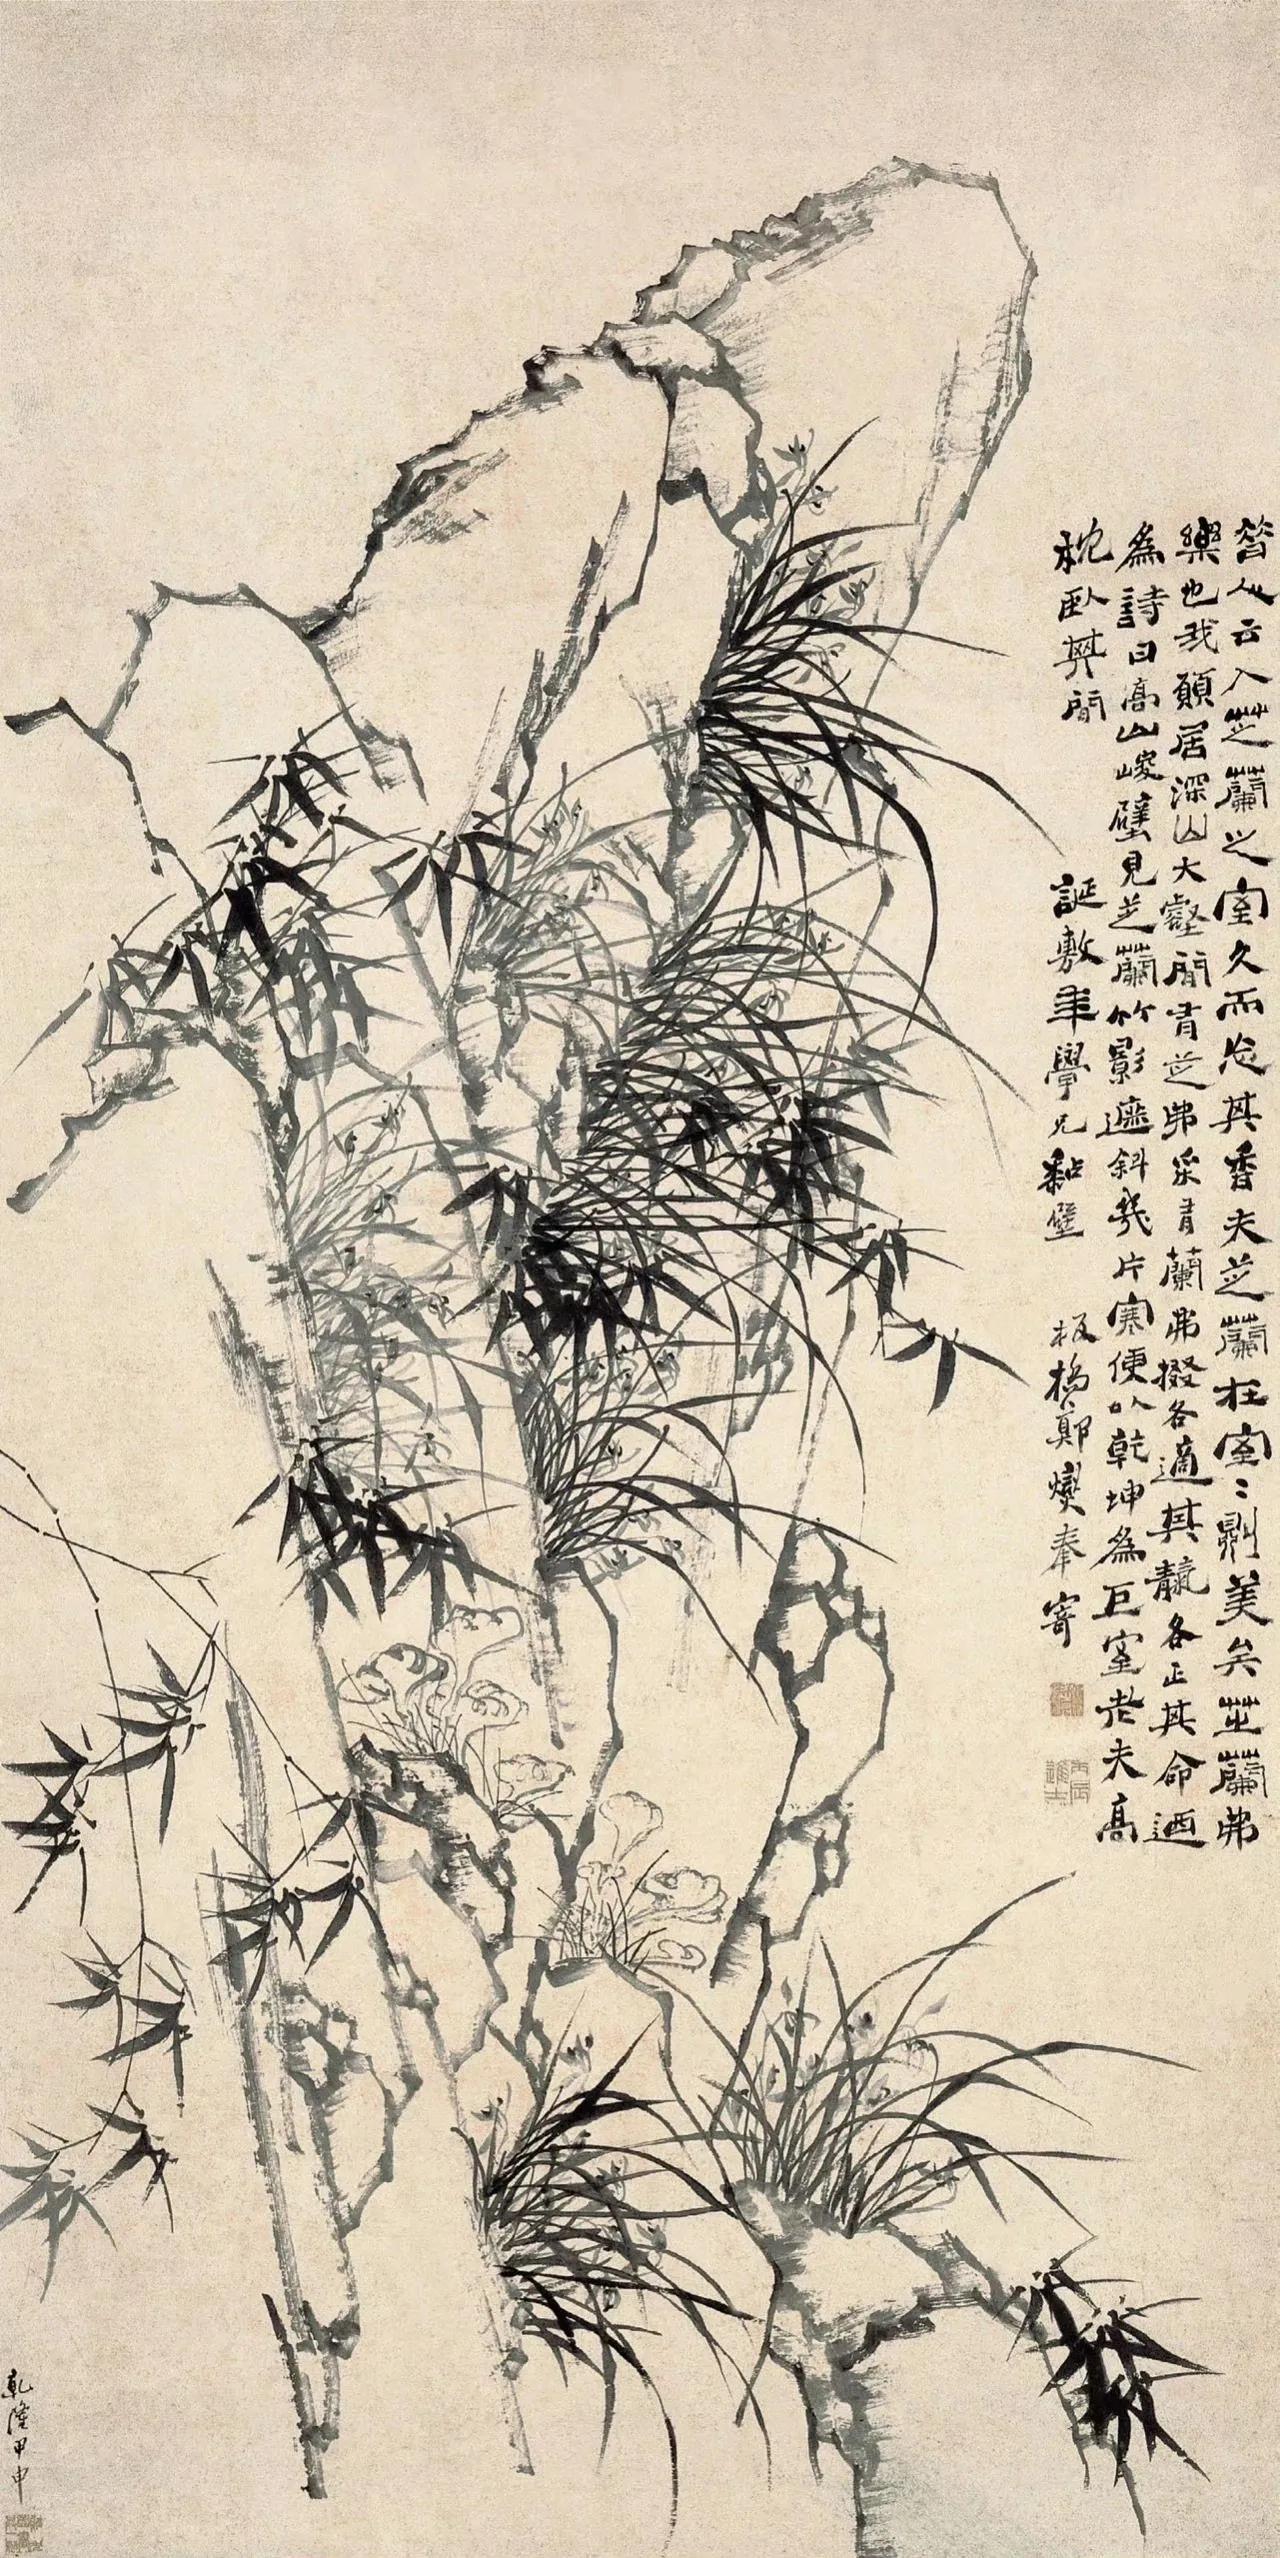 昔人云入芝蘭之室久而忘其香夫芝蘭在室室則美矣芝蘭弗
樂也我願居深山大壑間有芝弗采有蘭弗掇各適其天各正其命迺
為詩曰高山峻壁見芝蘭竹影遮斜幾片寒便以乾坤為巨室老夫高
枕臥其間
誕敷年學兄黏壁
板橋鄭燮奉寄
丙辰進士
乾隆甲申